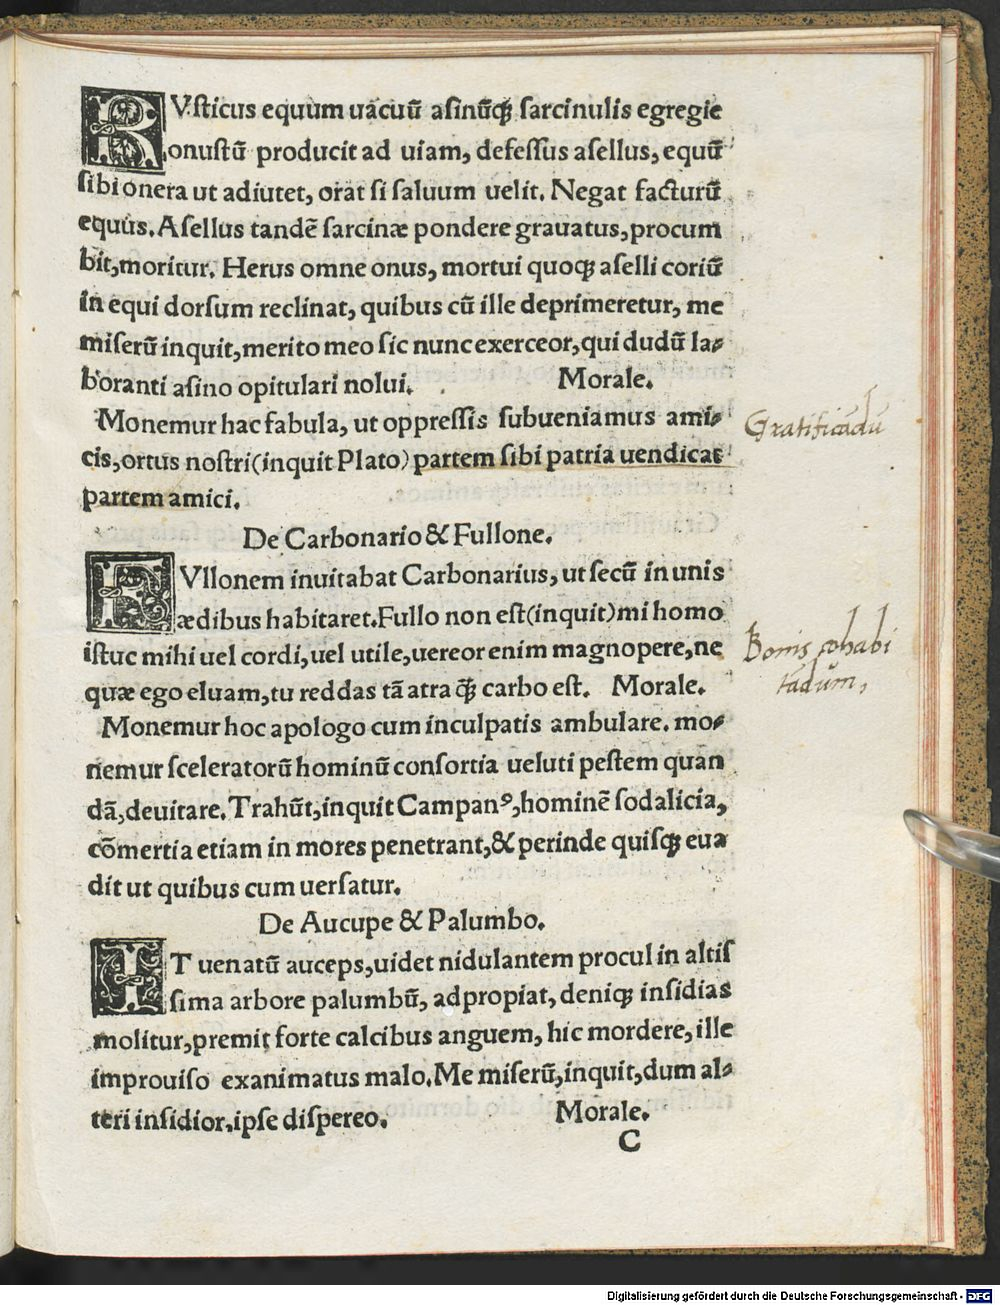 RVsticus equum uacuū asinūq̨ sarcinulis egregie
onustū producit ad uiam, defessus asellus, equū
sibi onera ut adiutet, orat si saluum uelit. Negat facturū
equus. Asellus tandē sarcinæ pondere grauatus, procum
bit, moritur. Herus omne onus, mortui quoq̨ aselli coriū
in equi dorsum reclinat, quibus cū ille deprimeretur, me
miserū inquit, merito meo sic nunc exerceor, qui dudū la⸗
boranti asino opitulari nolui. Morale.
Monemur hac fabula, ut oppressis subueniamus ami⸗
cis, ortus nostri (inquit Plato) partem sibi patria uendicat
partem amici.
Gratificādū
De Carbonario & Fullone.
FVllonem inuitabat Carbonarius, ut secū in unis
ædibus habitaret. Fullo non est (inquit) mi homo
istuc mihi uel cordi, uel utile, uereor enim magnopere, ne
quæ ego eluam, tu reddas tā atra q̄ȝ carbo est. Morale.
Bonis cohabi
tādum,
Monemur hoc apologo cum inculpatis ambulare. mo⸗
nemur sceleratorū hominū consortia ueluti pestem quan
dā, deuitare. Trahūt, inquit Campanꝰ, hominē sodalicia,
cōmertia etiam in mores penetrant, & perinde quisq̨ eua
dit ut quibus cum uersatur.
De Aucupe & Palumbo.
IT uenatū auceps, uidet nidulantem procul in altis
sima arbore palumbū, adpropiat, deniq̨ insidias
molitur, premit forte calcibus anguem, hic mordere, ille
improuiso exanimatus malo. Me miserū, inquit, dum al⸗
teri insidior, ipse dispereo. Morale.
C
Digitalisierung gefördert durch die Deutsche Forschungsgemeinschaft - DFG